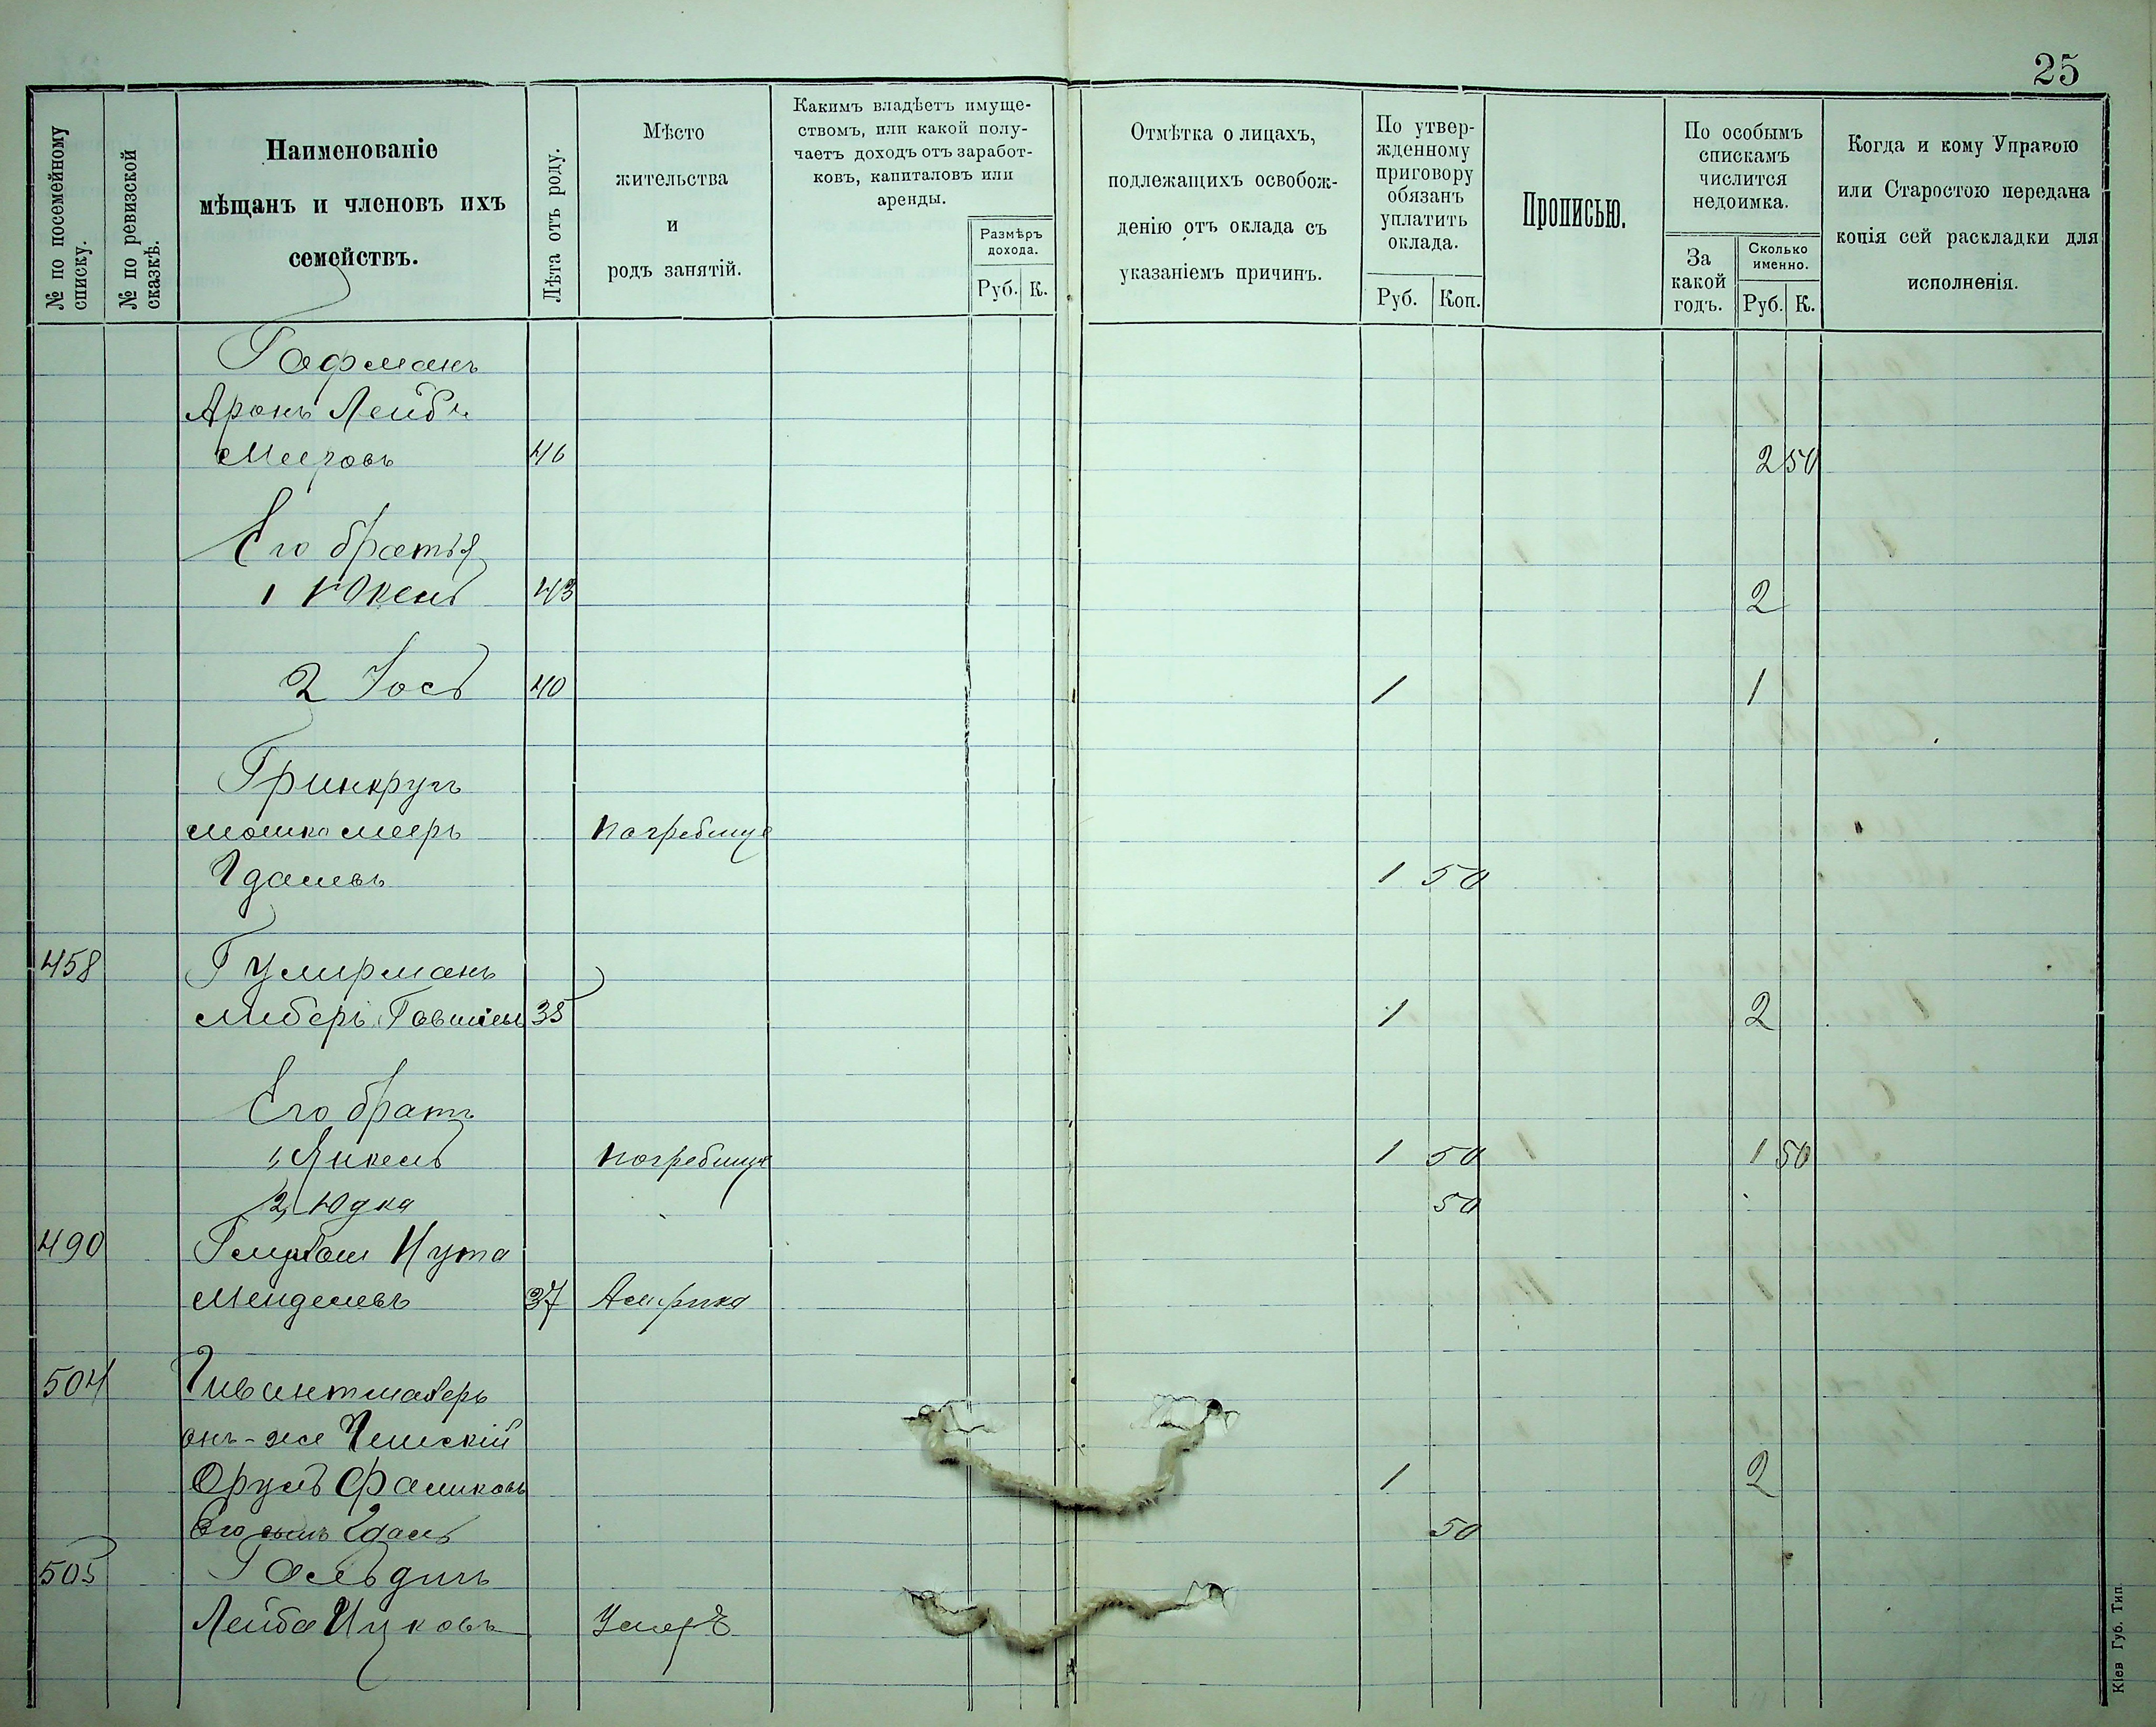 25
№ по посемейному списку.
№ по ревизской сказкѣ.
Наименованіе
мѣщанъ и членовъ ихъ
семействъ.
Лѣта отъ роду.
Мѣсто
жительства
и
родъ занятій.
Какимъ владѣетъ имуще-
ствомъ, или какой полу-
чаетъ доходъ отъ заработ-
ковъ, капиталовъ или
аренды.
Размѣръ
дохода.
Руб. К.
Отмѣтка о лицахъ,
подлежащихъ освобож-
денію отъ оклада съ
указаніемъ причинъ.
По утвер-
жденному
приговору
обязанъ
уплатить
оклада.
Руб. Коп.
Прописью.
По особымъ
спискамъ
числится
недоимка.
За
какой
годъ.
Сколько
именно.
Руб. К.
Когда и кому Управою
или Старостою передана
копія сей раскладки для
исполненія.
Гофманъ
Аронъ Лейбъ
Мееровъ 46 2 50
Его братья
1 Юкель 43 2
2 Іось 40 1 1
Гринкругъ
Мошко Мееръ Погребище
Гдалевъ 1 50
458 Гулерманъ
Либеръ 38 1 2
Его братъ
1, Янкель Погребище 1 50 1 50
2, Юдка 50
490 Нута
Менделевъ 37 Америка
504
онъ-же
Фаликовъ 1 2
Его сынъ Гдаль 50
505 Гольдичъ
Лейба Ицковъ Умеръ
Кіев Губ. Тип.